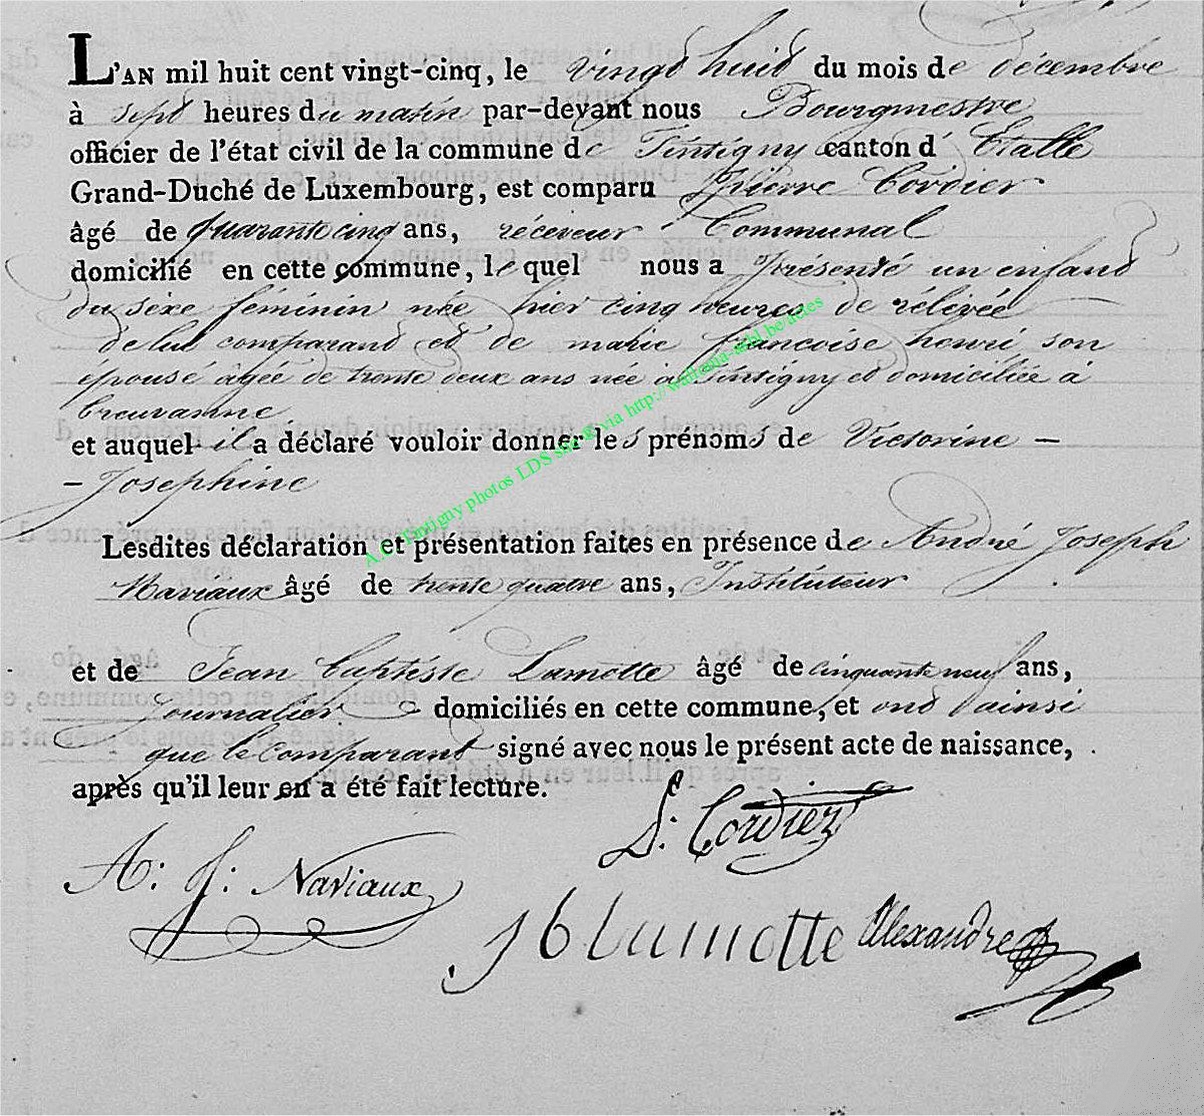 L'AN mil huit cent vingt-cinq, le vingd huid du mois de décembre
à sept heures du matin par-devant nous Bourgmestre
officier de l'état civil de la commune de Tintigny canton d' Etalle
Grand-Duché de Luxembourg, est comparu Pierre Cordier
âgé de quarante cinq ans, réceveur Communal
domicilié en cette commune, lequel nous a présenté un enfand
du sexe féminin née hier cinq heures de rélévée
de lui comparand et de marie francoise henri son
épousé âgée de trente deux ans née à Tintigny et domiciliée à
breuvanne
et auquel il a déclaré vouloir donner les prénoms de Victorine –
– Josephine
Lesdites déclaration et présentation faites en présence de André Joseph
Naviaux âgé de trente quatre ans, Instituteur
et de Jean baptiste Lamotte âgé de cinquante neuf ans,
journalier domiciliés en cette commune, et ond S'ainsi
que le comparant signé avec nous le présent acte de naissance,
après qu'il leur en a été fait lecture.
P. Cordier
A: J: Naviaux
J b lamotte Alexandre
A.C. Tintigny photos LDS via http://wallonia-asbl.be/actes